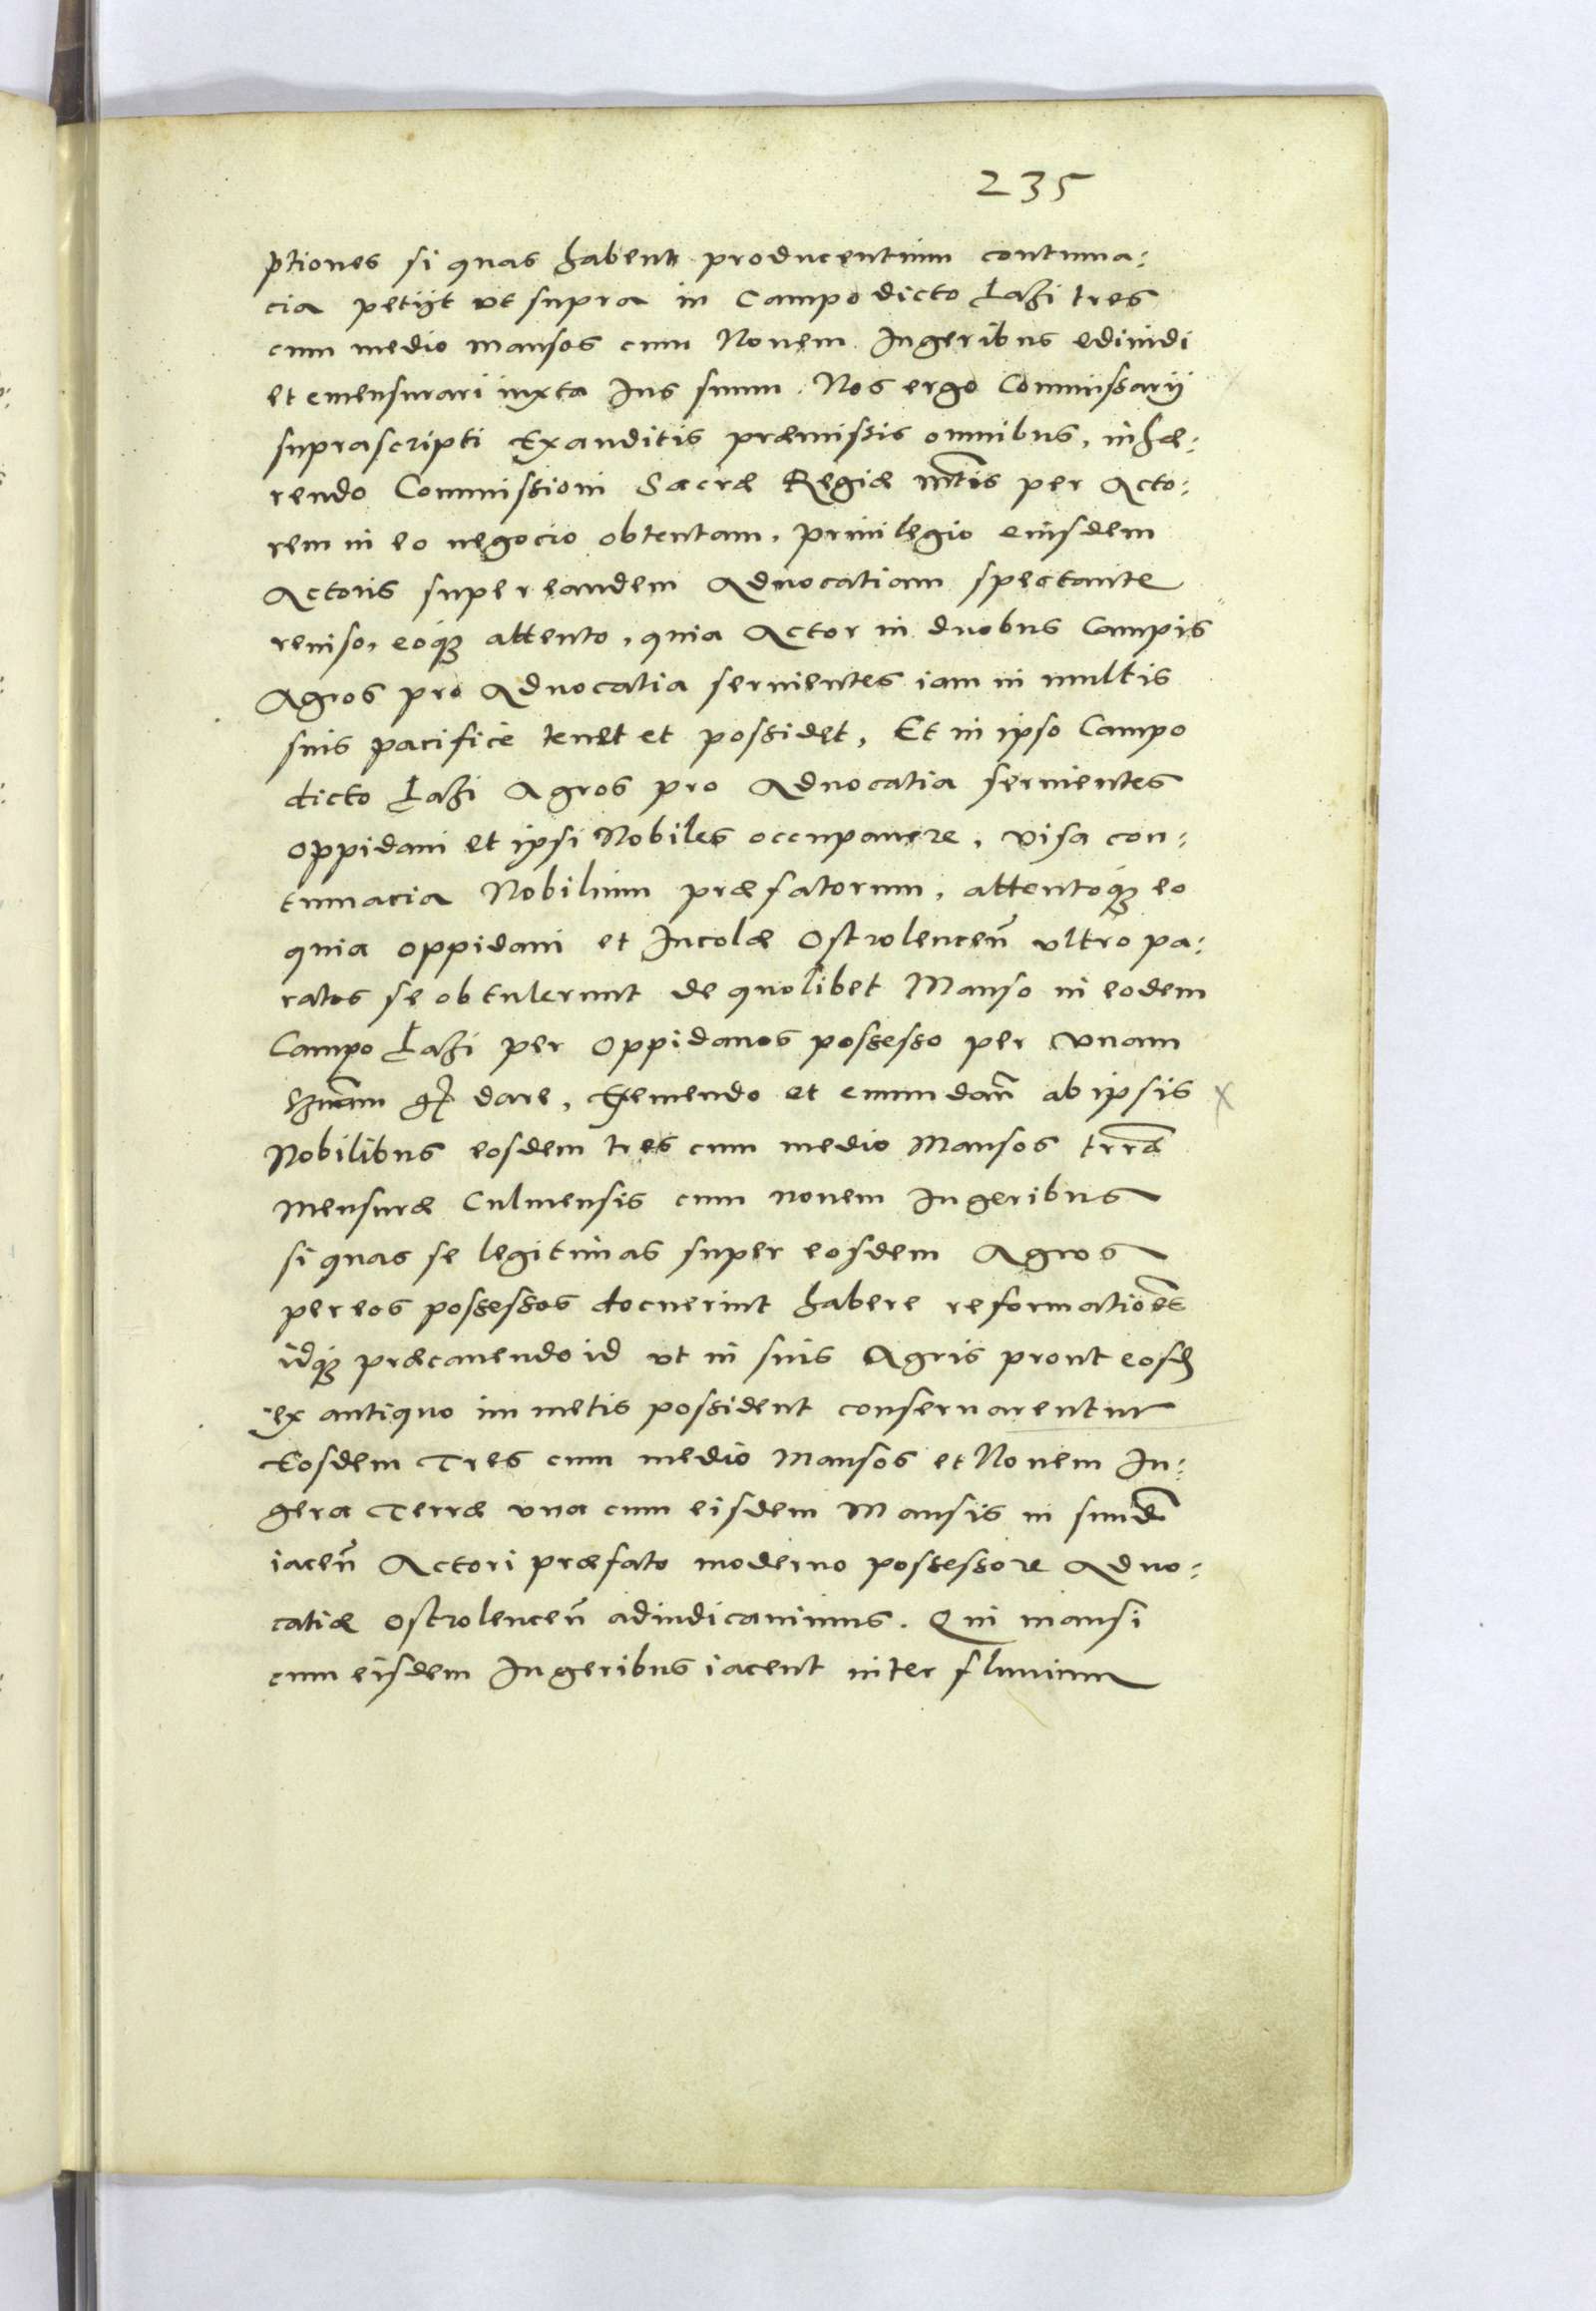 235
ptiones si quas habent producentium contuma:
cia petijt ut supra in Campo dicto Łazi tres
cum medio mansos cum Novem Iugeribus edividi
et emensurari iuxta Ius suum. Nos ergo Commissarij
suprascripti Exauditis præmissis omnibus, inhæ:
rendo Commissioni Sacræ Regiæ Mtis per Acto:
rem in eo negocio obtentam, privilegio eiusdem
Actoris super eandem Advocatiam spectante
reviso, eoq attento, quia Actor in duobus Campis
Agros pro Advocatia servientes iam in multis
suis pacifice tenet et possidet, Et in ipso Campo
dicto Łazi Agros pro Advocatia servientes
Oppidani et ipsi Nobiles occupavere, visa con:
tumacia Nobilium præfatorum, attentoq eo
quia oppidani et Incolæ Ostrolencen ultro pa:
ratos se obtulerunt de quolibet Manso in eodem
Campo Łazi per Oppidanos possesso per unam
dare, et emundan ab ipsis
Nobilibus eosdem tres cum medio Mansos trræ
Mensuræ Culmensis cum novem Iugeribus
si quas se legitimas super eosdem Agros
per eos possessos docuerint habere reformationes
idq præcavendo id ut in suis Agris prout eosd
ex antiquo in metis possident conservarentur
Eosdem Tres cum medio Mansos et Novem Iu:
gera Terræ una cum eisdem Mansis in simul
iacen Actori præfato moderno possessore Advo:
catiæ Ostrolencen adiudicavimus. Qui mansi
cum eisdem Iugeribus iacent inter fluvium